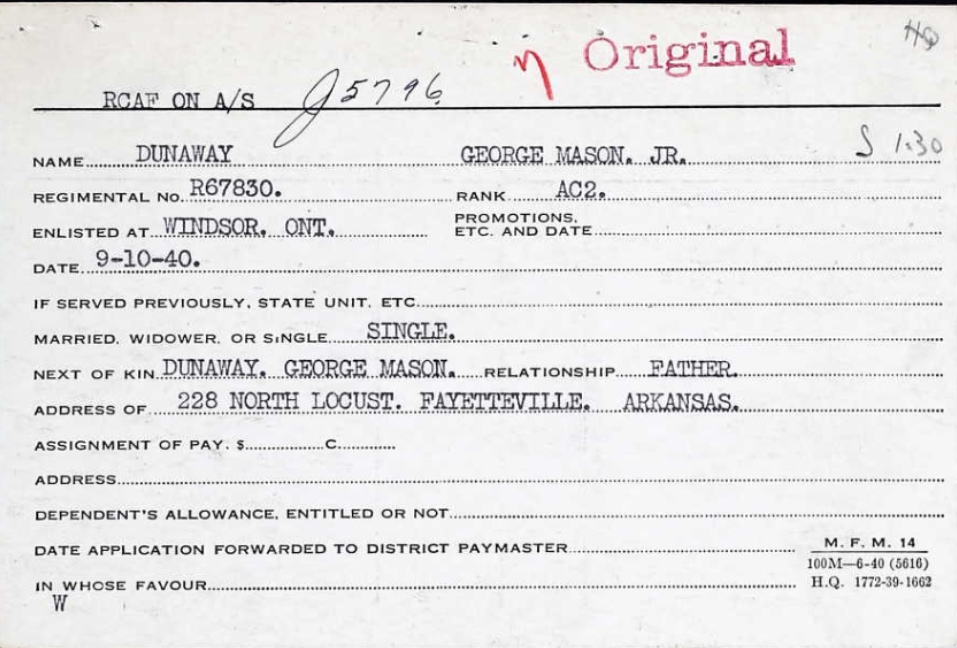 Original
HQ
RCAF ON A/S J5796
NAME DUNAWAY GEORGE MASON. JR. S 1.30
REGIMENTAL NO. R67830. RANK AC2.
ENLISTED AT WINDSOR. ONT. PROMOTIONS, ETC. AND DATE
DATE 9-10-40.
IF SERVED PREVIOUSLY, STATE UNIT, ETC
MARRIED, WIDOWER, OR SINGLE SINGLE.
NEXT OF KIN DUNAWAY. GEORGE MASON. RELATIONSHIP FATHER.
ADDRESS OF 228 NORTH LOCUST. FAYETTEVILLE. ARKANSAS.
ASSIGNMENT OF PAY. $ C
ADDRESS
DEPENDENT'S ALLOWANCE, ENTITLED OR NOT
DATE APPLICATION FORWARDED TO DISTRICT PAYMASTER
IN WHOSE FAVOUR
W
M. F. M. 14
100M—6-40 (5616)
H.Q. 1772-39-1662